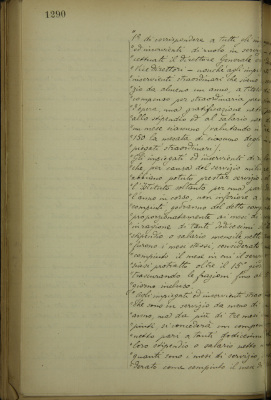 1290
"1° di corrispondere a tutti gli im
ed inservienti di ruolo in servi
eccettuati il Direttore Generale e
i Vice Direttori - nonché agli impie
inservienti straordinari che siano
zio da almeno un anno, a titolo
compenso per straordinarie
opere, una gratificazione
allo stipendio ed al salario
un mese ciascuno (valutando in
150 la mesata di ciascuno degli
piegati straordinari).
"Gli impiegati ed inservienti di
che per causa del servizio milita
abbiano potuto prestar servizio
l'Istituto soltanto per una par
l'anno in corso, non inferiore a
proporzionatamente ai mesi di
in ragione di tanti dodicesimi
stipendio o salario mensile
furono i mesi stessi, considerato
compiuto il mese in cui il serv
siasi protratto oltre il 15° gior
trascurando le frazioni fino al
giorno incluso.
"Agli impiegati ed inservienti strao
che con un servizio da meno di
anno, ma da più di tre mesi
pindi si concederà un compen
nesso pari a tanti dodicesimi
loro stipendio o salario
quanti sono i mesi di servizio
derato come compiuto il mese